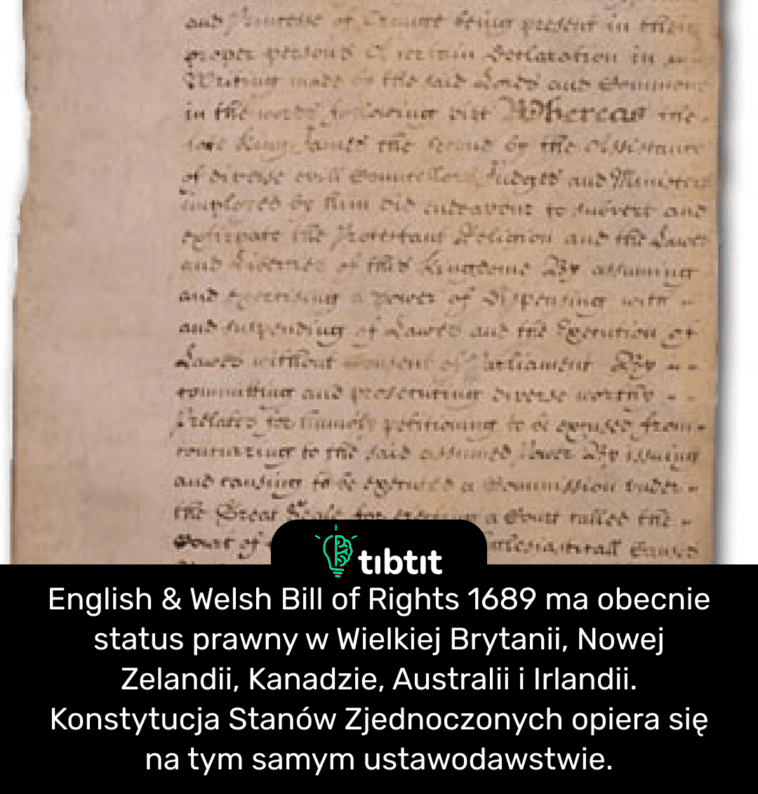 and Princesse of Orange being present in their
proper persons a certain Declaration in
Writing made by the said Lords and Commons
in the words following viz Whereas the
late King James the Second by the Assistance
of diverse evill Councellors Judges and Ministers
imployed by him did endeavour to subvert and
extirpate the Protestant Religion and the Lawes
and Liberties of this Kingdome By assuming
and Exercising a power of Dispensing with
and suspending of Lawes and the Execution of
Lawes without Consent of Parliament By
committing and prosecuting diverse worthy
Prelates for humbly petitioning to be excused from
concurring to the said assumed Power By issuing
and causing to be executed a Commission under
the Great Seale for a Court called the
Court of Ecclesiasticall Causes
tibtit
English & Welsh Bill of Rights 1689 ma obecnie
status prawny w Wielkiej Brytanii, Nowej
Zelandii, Kanadzie, Australii i Irlandii.
Konstytucja Stanów Zjednoczonych opiera się
na tym samym ustawodawstwie.